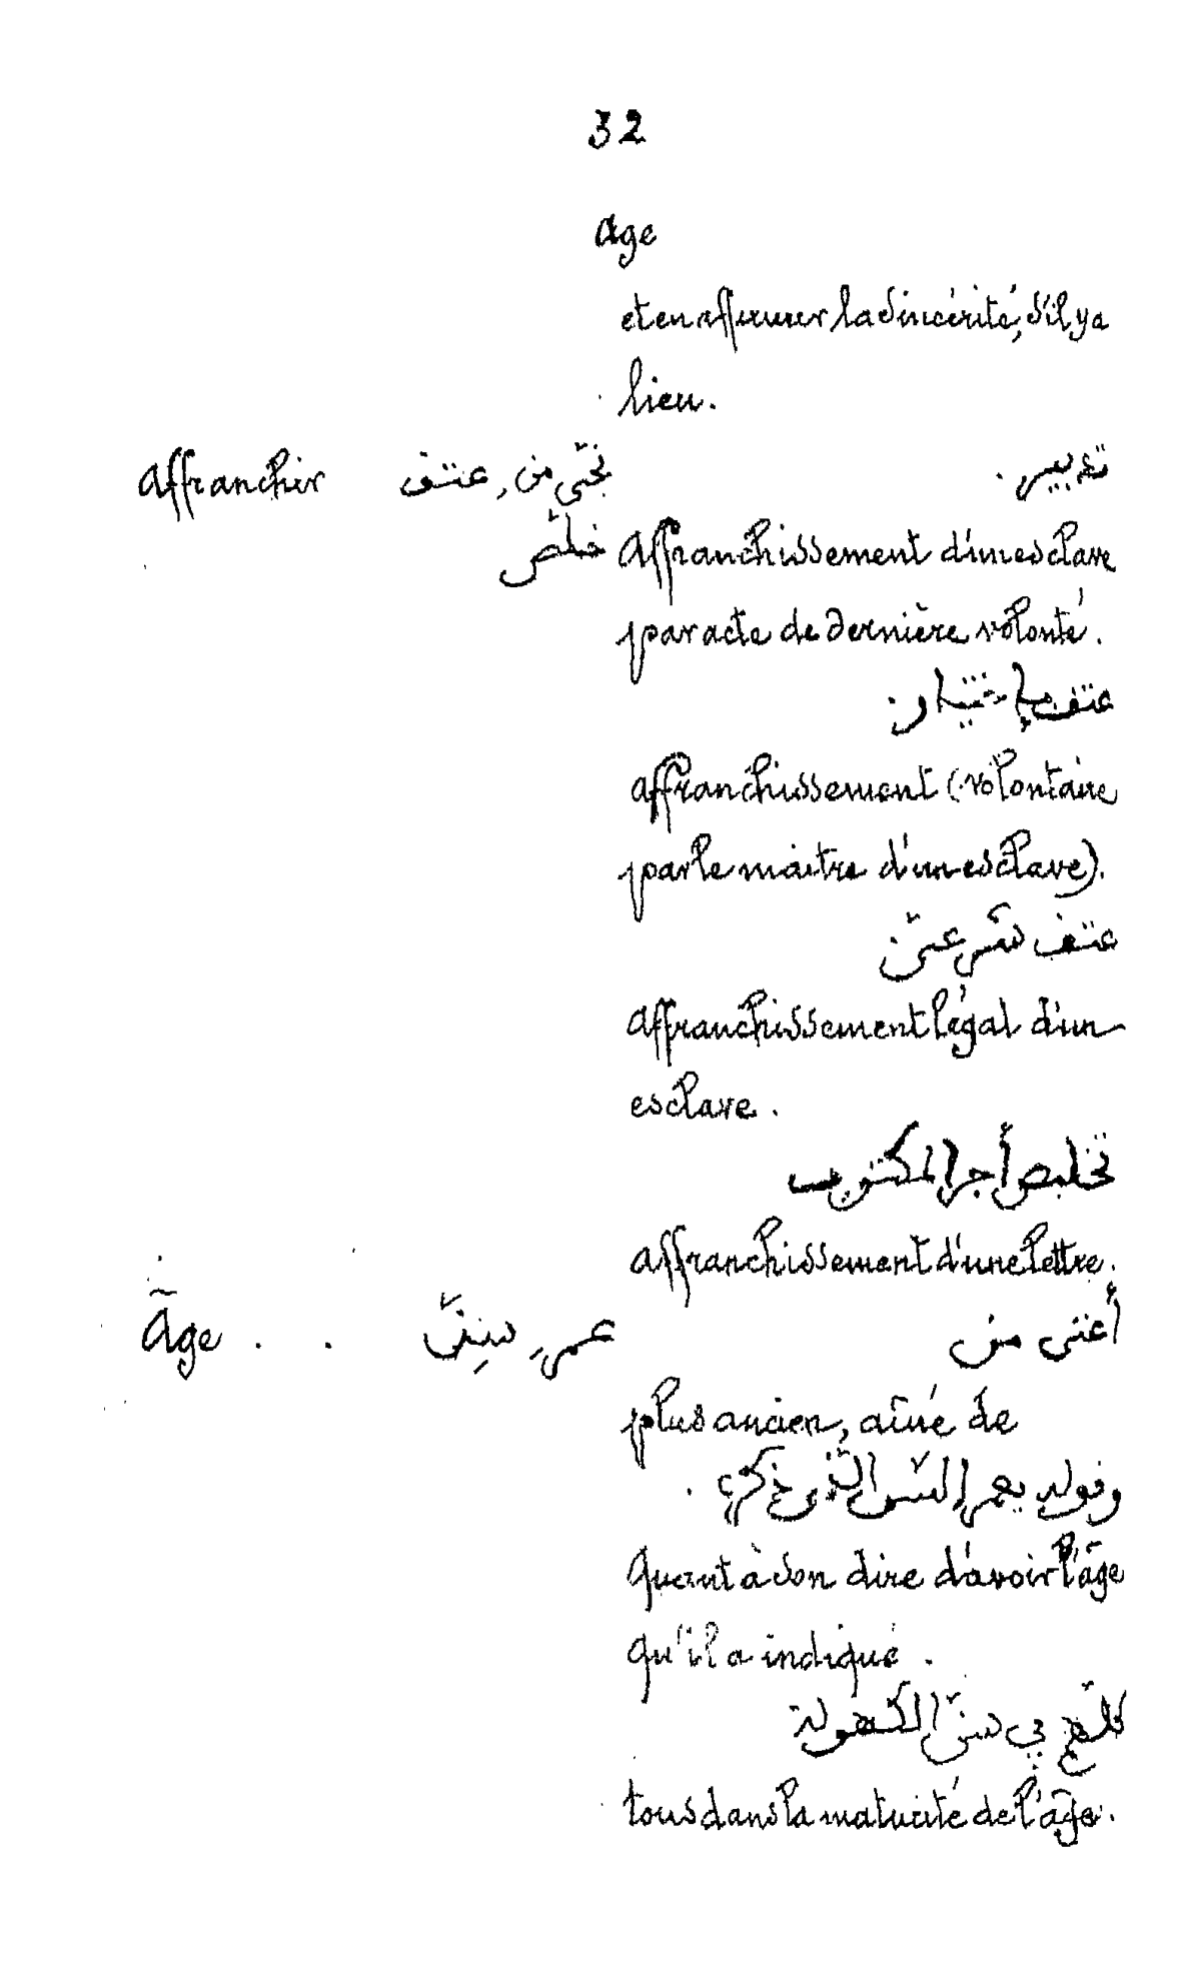 32
Age
et en affirmer la sincérité, s'il y a
lieu.
Affranchir عتق , من
تدبير.
خلّص Affranchissement d'un esclave
par acte de dernière volonté.
عتق بإختيار
affranchissement (volontaire
par le maître d'un esclave).
عتق شرعيّ
Affranchissement légal d'un
esclave.
تخليص أجر المكتوب
affranchissement d'une lettre.
Âge . . عمر سِنّ
من
plus ancien, aîné de
وقوله بعمر السّن الّذي ذكره .
Quant à son dire d'avoir l'âge
qu'il a indiqué.
كلّهم في سنّ الكهولة
tous dans la maturité de l'âge.